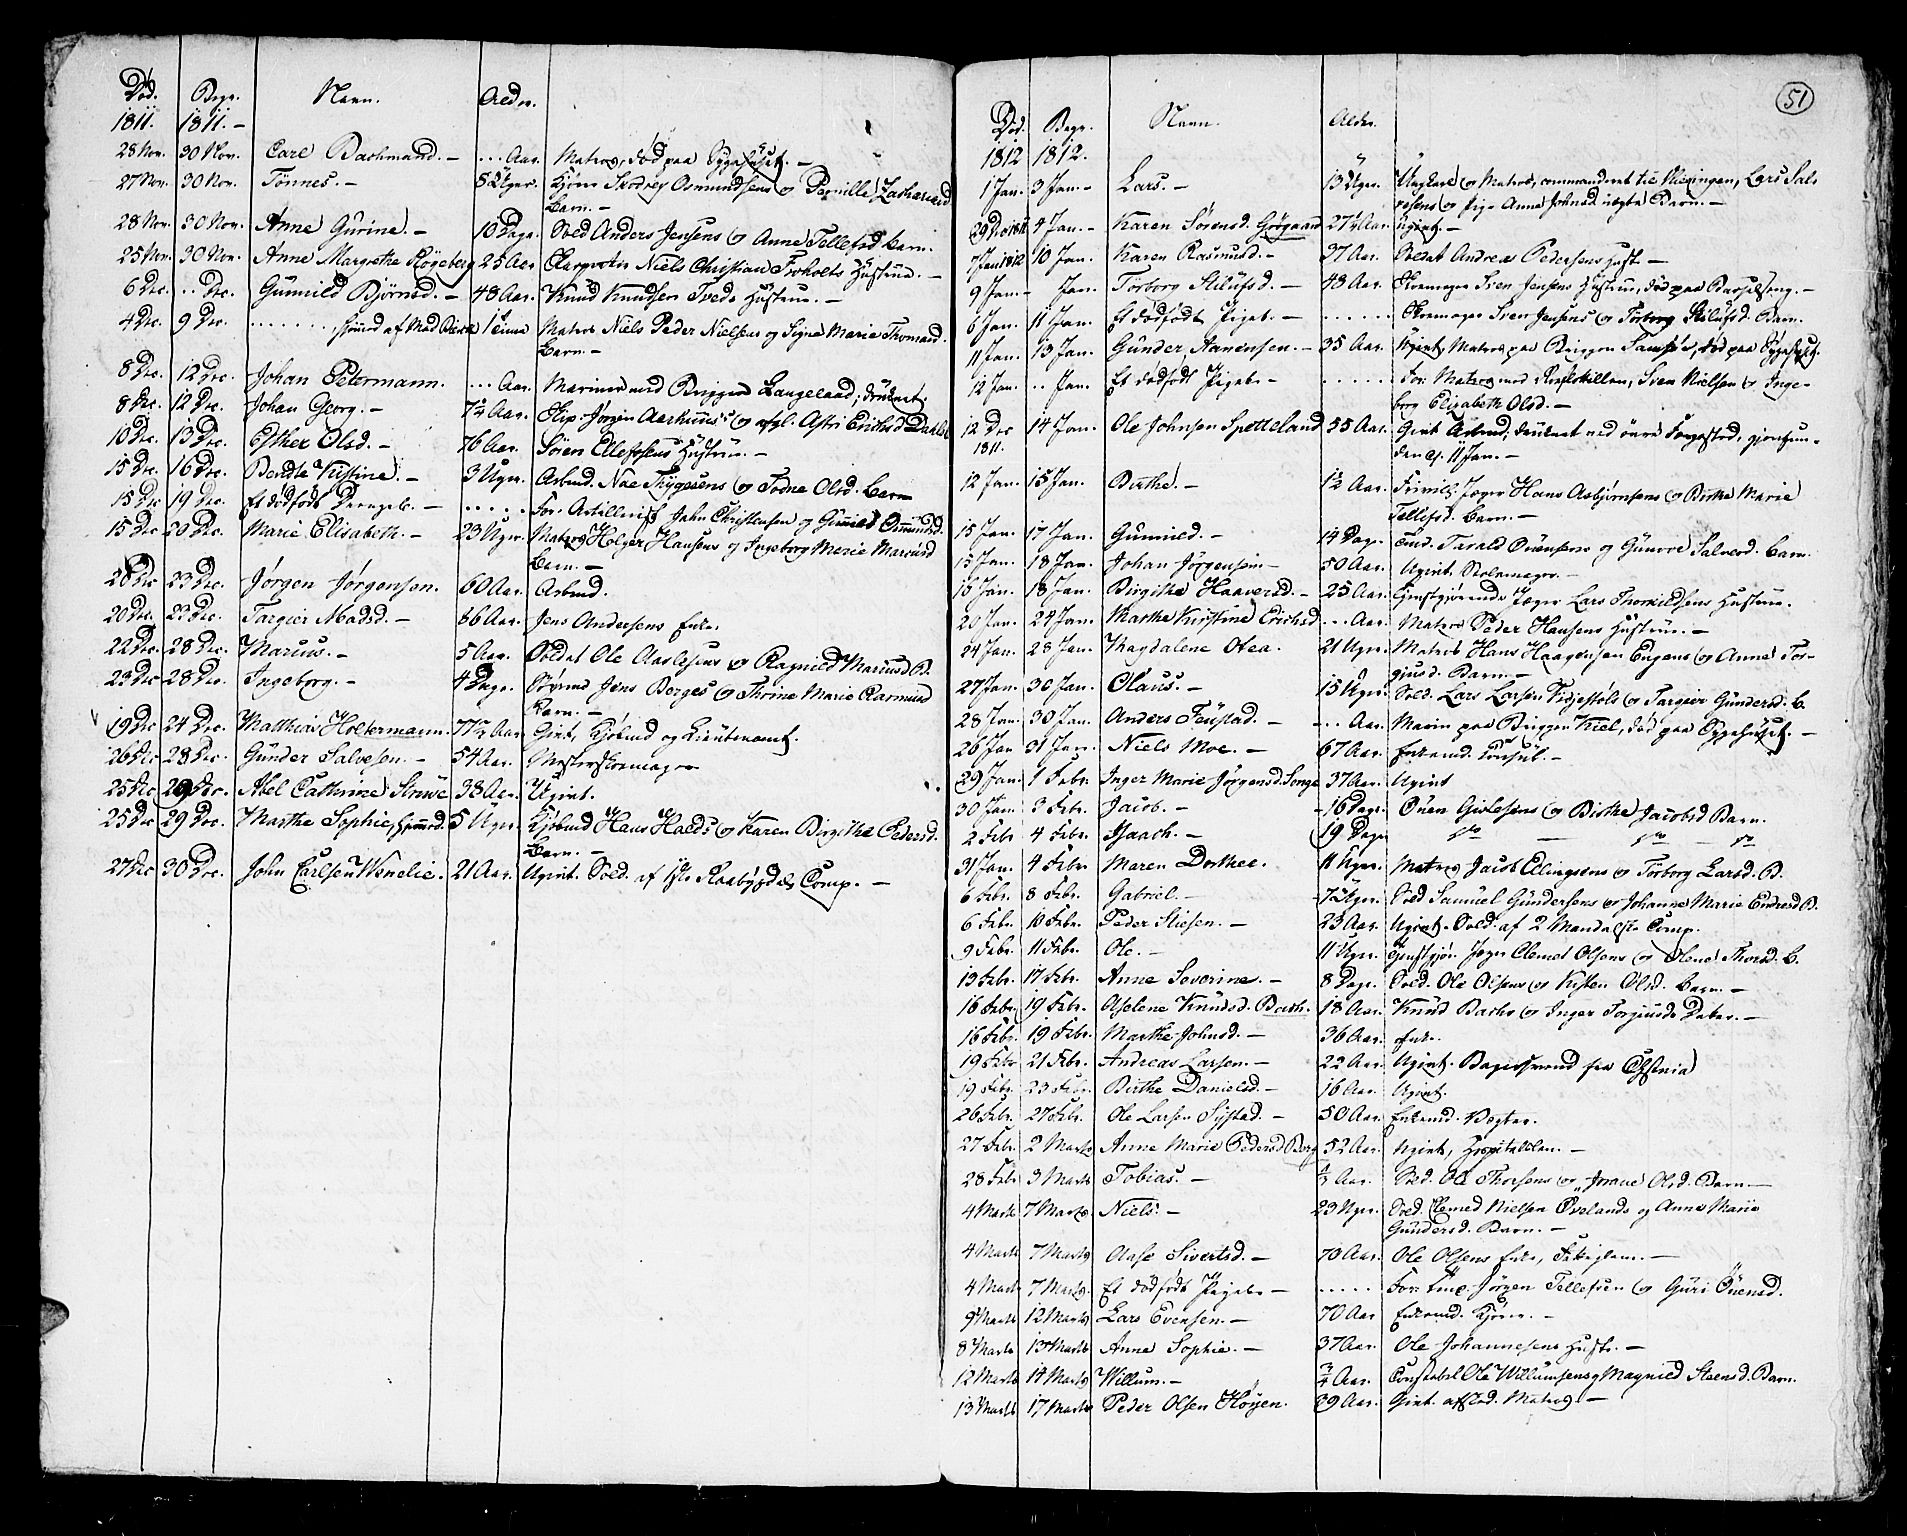 Död. Begr. Navn. Alder.
1811. 1811. -
28 Nov. 30 Nov. Carl Bachmand. - ... Aar. Matros, död paa Sygehuset. -
27 Nov. 30 Nov. Tönnes. - 5 Uger. Osmundsens og Pernille Zachariasd
Barn. -
28 Nov. 30 Nov. Anne Gurine. - 10 Dage. Sold Anders Jensens og Anne Tellefsd. Barn.
25 Nov. 30 Nov. Anne Margrethe Rögeberg 25 Aar Niels Christian Froholts Hustrue. -
6 Dec. .. Dec. Gunnild Björnsd. - 48 Aar. Knud Knudsen Tveds Hustrue. -
4 Dec. 9 Dec. ........ 1 Time Matros Niels Peder Nielsen og Signe Marie Thomasd.
Barn. -
8 Dec. 12 Dec. Johan Petermann. ... Aar. Mariner med Briggen Langeland; druknet.
8 Dec. 12 Dec. Johan Georg. - 7½ Aar. Skip. Jörgen Aarhuus's og afgl. Astri Erichsd
10 Dec. 13 Dec. Esther Olsd. - 76 Aar. Sören Ellefsens Hustrue. -
15 Dec. 16 Dec. Bendte Kistine. - 3 Uger. Arbmd. Noe Thygesens og Todne Olsd. Barn
15 Dec 19 Dec. Et dödfödt Drengeb. - ..... For. Artillerist John Christensen og Gunild Omundsd.
15 Dec 20 Dec. Marie Elisabeth. - 23 Uger. Matros Holger Hansens og Ingeborg Marie
Barn. -
20 Dec 23 Dec. Jörgen Jörgensen. 60 Aar. Arbmd.
20 Dec. 23 Dec. Targier Madsd. - 66 Aar. Jens Andersens Enke.
22 Dec. 28 Dec. Marius. - 5 Aar. Soldat Ole Aaslesens og Ragnild Mariusd B.
23 Dec 28 Dec. Ingeborg. - 4 Dage. Jens Berges og Thrine Marie Rasmusd
Barn. -
19 Dec 24 Dec. Matthias Holtermann. 77½ Aar. Givt, Kjöbmd og Lieutenant.
26 Dec 28 Dec. Gunder Salvesen. - 54 Aar. Mesterskomager
25 Dec 29 Dec. Abel Cathrine Struve 38 Aar. Ugivt.
25 Dec 29 Dec. Marthe Sophie, 5 Uger. Kjöbmd Hans Holds og Karen Birgitha Pedersd.
Barn. -
27 Dec 30 Dec. John Carlsen Venelie. 21 Aar. Ugivt. Sold. af 1ste Raabygdels Comp. -
51
Död. Begr. Navn. Alder.
1812 1812.
1 Jan. 3 Jan. - Lars. - 13 Uger. Ungkarl og Matros, commanderet til Lars Sal
vesens og Pige Anne Johnsd. uægte Barn. -
29 Dec 1811 4 Jan. - Karen Sörensd. 27½ Aar. Ugivt. -
7 Jan 1812 10 Jan. Karen Rasmusd. - 37 Aar. Soldat Andreas Pedersens Hust. -
9 Jan. - Jan. Torborg Stilufsd. - 48 Aar. Skomager Sven Jensens Hustrue, död paa Barselseng. -
6 Jan. 11 Jan. Et dödfödt Pigeb. - ...... Skomager Sven Jensens og Torborg Stilufsd. Barn.
11 Jan. 13 Jan. Gunder Aanensen. - 35 Aar. Ugivt, Matros paa Briggen Samsöe, död paa Sygehuset.
12 Jan. .. Jan. Et dödfödt Pigeb. - ...... For. Matros med Sven Nielsen og Inge-
borg Elisabeth Olsd. -
12 Dec 14 Jan. Ole Johnsen Spetteland 55 Aar. Givt Arbmd; druknet ved övre gjenfun-
1811. den d. 11 Jan. -
12 Jan. 15 Jan. Birthe. - 1½ Aar. Frivill. Jæger Hans Asbjörnsens og Birthe Marie
Tellefsd. Barn. -
15 Jan. 17 Jan. Gunnild. - 14 Dage. Tarald Ouensens og Gunvor Salvesd. Barn
15 Jan. 18 Jan. Johan Jörgensen - 50 Aar. Ugivt. Stolemager. -
16 Jan. 18 Jan. Birgithe Haaversd. - 25 Aar. Tjenstgjörende Jæger Lars Thorkildsens Hustrue.
20 Jan. 24 Jan. Marthe Kirstine Erichsd. ... Aar. Matros Peder Hansens Hustrue. -
24 Jan. 28 Jan. Magdalene Olea. 21 Uger. Matros Hans Haagensen Eugens og Anne Tor-
gjusd. Barn. -
27 Jan. 30 Jan. Olaus. - 15 Uger. Sold. Lars Larsen og Targier Gundersd. B.
28 Jan. 30 Jan. Anders Feustad. - ... Aar. Marin paa Briggen Kiel, död paa Sygehuset. -
26 Jan 31 Jan. Niels Moe. - 67 Aar. Enkemd. Consul. -
29 Jan. 1 Febr. Inger Marie Jörgensd. Songe 37 Aar. Ugivt
30 Jan. 3 Febr. Jacob. - 16 Dage. Ouen Gislesens og Birthe Jacobsd Barn.
2 Febr 4 Febr. Isaach. - 19 Dage do - do - do
31 Jan. 4 Febr. Maren Dorthee. 11 Uger. Matros Jacob Ellingsens og Torborg Larsd. B.
6 Febr. 8 Febr. Gabriel. - 7 Uger. Sold Samuel Gundersens og Johanne Marie Endresd B.
6 Febr. 10 Febr. Peder Stiesen. - 23 Aar. Ugivt. Sold. af 2 Mandalske Comp.
9 Febr. 11 Febr. Ole. - 11 Uger. Tjenstgjör. Jæger Clemet Olsens og Olene Thorsd. B.
13 Febr. 17 Febr. Anne Severine. - 8 Dage. Sold. Ole Olsens og Kisten Olsd. Barn. -
16 Febr. 19 Febr. Aslene Knudsd. Bach. 18 Aar. Knud Bachs og Inger Torgiusds Dater. -
16 Febr. 19 Febr. Marthe Johnsd. - 36 Aar. Enke.
19 Febr 21 Febr. Andreas Larsen. - 22 Aar. Ugivt. Bagersvend fra
19 Febr 23 Febr. Birthe Danielsd. - 16 Aar. Ugivt.
26 Febr. 27 Febr. Ole Larsen Systad. - 50 Aar. Enkemd. Vægter.
27 Febr. 2 Marts Anne Marie Pedersd Berg 52 Aar. Ugivt, Hospitalslem. -
28 Febr 3 Marts Tobias. - Aar. Sold. Ole Thorsens og Jorane Olsd. Barn -
4 Marts 7 Marts. Niels. - 23 Uger. Sold. Clemed Nielsen Övelands og Anne Marie
Gundersd. Barn. -
4 Marts 7 Marts Aase Sivertsd. - 70 Aar. Ole Olsens Enke, Fattiglem. -
4 Marts 7 Marts. Et dödfödt Pigeb. - ..... For. Jörgen Tellefsen og Guri Ouensd.
9 Marts 12 Marts Lars Evensen. - 70 Aar Enkemd. Kjörer. -
8 Marts 13 Marts Anne Sophie. - 37 Aar. Ole Johannesens Hustr. -
12 Marts 14 Marts Willum. - ¾ Aar. Constabel Ole Willumsens og Magnild Steensd. Barn.
13 Marts 17 Marts Peder Olsen Höyen. 39 Aar. Givt. afskd. Matros. -